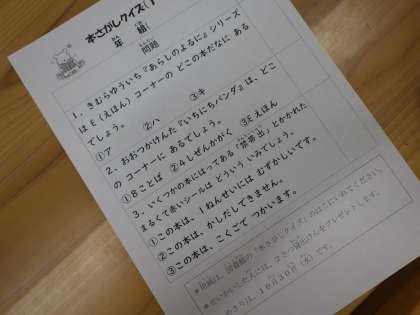 本さがしクイズ(1
年 組(
問題
1、きむらゆういち『あらしのよるに』シリーズ
はE(えほん)コーナーの どこの本だなに ある
でしょう。
①ア ②ハ ③キ
2、おおつかけんた『いちにちパンダ』は、どこ
の コーナーに あるでしょう。
①8ことば ②4しぜんかがく ③Eえほん
3、いくつかの本にはってある「禁帯出」とかかれた
まるくて赤いシールは どういう いみでしょう。
①この本は、1ねんせいには むずかしいです。
②この本は、かしだしできません。
③この本は、こくごで つかいます。
のはこにいれてください。
けんをプレゼントします。
10月30日(水)です。